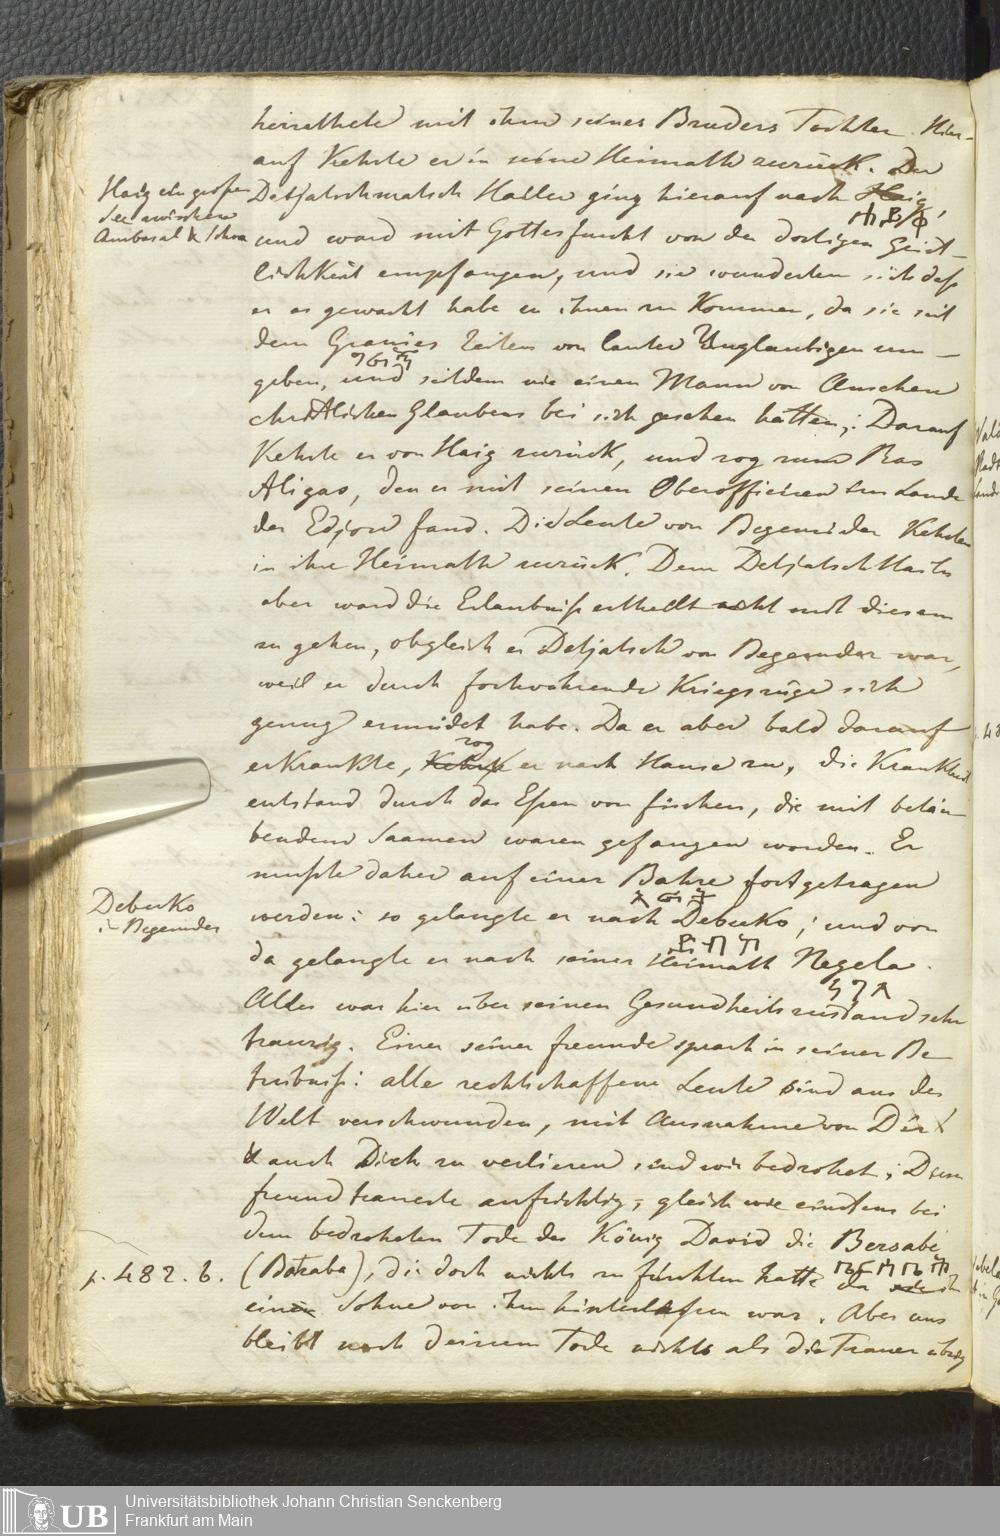 heirathete mit ihm seines Bruders Tochter. Hier-
auf Kehrte er in seine Heimath zurück. Der
Haig ein großer
See zwischen
Ambasal & Schoa
Detjatschmatsch Hailu ging hierauf nach Haig,
und ward mit Gottesfurcht von der dortigen Geist-
lichkeit empfangen, und sie wunderten sich daß
er es gewagt habe zu ihnen zu Kommen, da sie seit
dem Granies Zeiten von lauter Unglaubigen um-
geben, und seitdem nie einen Mann von Ansehen
christlichen Glaubens bei sich gesehen hätten; Darauf
Kehrte er von Haig zurück, und zog zum Ras
Aligas, den er mit seinen Oberofficieren im Lande
der Edjow fand. Die Leute von Begemider Kehrten
in ihre Heimath zurück. Dem Detjatsch Hailu
aber ward die Erlaubniß ertheilt nicht mit diesem
zu gehen, obgleich er Detjatsch von Begemder war,
weil er durch fortwährende Kriegszüge sich
genug ermüdet habe. Da er aber bald darauf
zog
erKrankte, er nach Hause zu, die Krankheit
entstand durch das Eßen von fischen, die mit betäu-
bendem Saamen waren gefangen worden. Er
mußte daher auf einer Bahre fortgetragen
Debuko
in Begemder
werden: so gelangte er nach Debuko; und von
da gelangte er nach seiner Heimath Negela.
Alles war hier über seinen Gesundheitszustand sehr
traurig. Einer seiner freunde sprach in seiner Be-
trübniß: alle rechtschaffene Leute sind aus der
Welt verschwunden, mit Ausnahme von Dir!
& auch Dich zu verlieren sind wir bedrohet; Dein
freund trauerte aufrichtig, gleich wie einstens bei
dem bedroheten Tode des König David die Bersabe
p. 482. b.
(Batzaba), die doch nichts zu fürchten hatte da
ein Sohn von ihm hinterlaßen war. Aber uns
bleibt nach deinem Tode nichts als die Trauer übrig
Universitätsbibliothek Johann Christian Senckenberg
Frankfurt am Main
UB